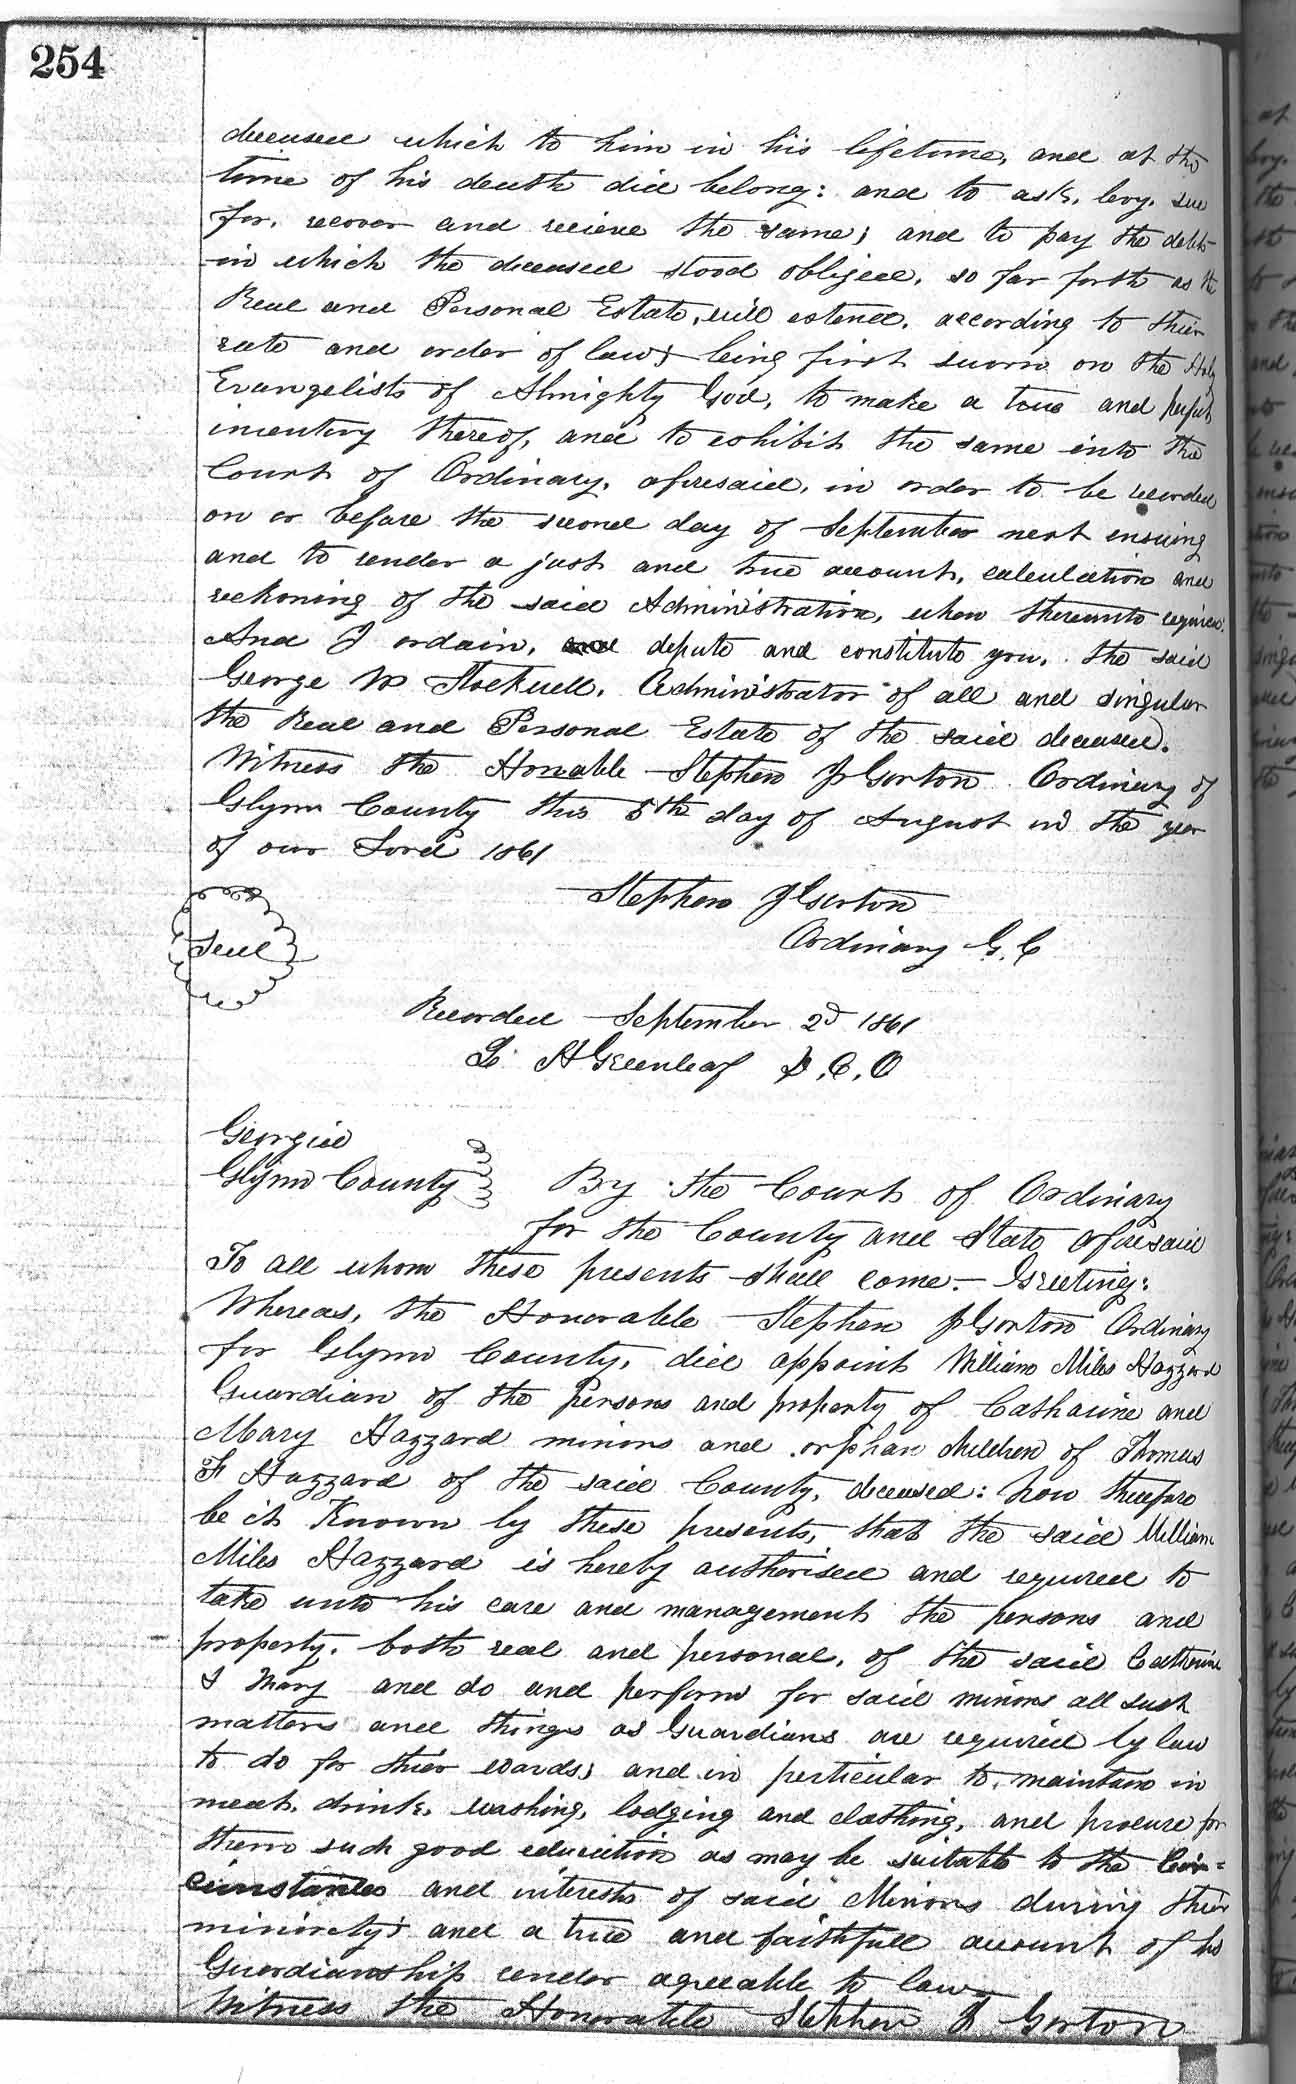 254
deceased which to him in his lifetime, and at the
time of his death did belong: and to ask, levy, sue
for, recover and recieve the same; and to pay the debts
in which the deceased stood obliged, so far forth as th
Real and Personal Estate, will extend, according to thier
rate and order of law; being first sworn on the Holy
Evangelists of Almighty God, to make a true and perfect
inventory thereof, and to exhibit the same into the
Court of Ordinary, aforesaid, in order to be recorded
on or before the second day of September next ensuing
and to render a just and true account, calculation and
reckoning of the said Administration, when thereunto required.
And I ordain, depute and constitute you, the said
George W Stockwell, Administrator of all and singular
the Real and Personal Estate of the said deceased.
Witness the Honable Stephen J Gorton Ordinary of
Glynn County this 5th day of August in the year
of our Lord 1861
Stephen J Gorton
Ordinary G. C
Seal
Recorded September 2d 1861
L. H Greenleaf D. C. O
Georgia
Glynn County
By the Court of Ordinary
for the County and State aforesaid
To all whom these presents shall come - Greeting:
Whereas, the Honorable Stephen J Gorton Ordinary
for Glynn County, did appoint William Miles Hazzard
Guardian of the persons and property of Catharine and
Mary Hazzard minors and orphan children of Thomas
F Hazzard of the said County, deceased: Now therefore
be it Known by these presents, that the said William
Miles Hazzard is hereby authorised and required to
take unto his care and management the persons and
property, both real and personal, of the said Catherine
& Mary and do and perform for said minors all such
matters and things as Guardians are required by law
to do for thier wards; and in perticular to, maintain in
meat, drink, washing, lodging and clothing, and procure for
them such good education as may be suitable to the Cir=
cumstances and interests of said Minors during thier
minority; and a true and faithfull account of his
Guardianship render agreeable to law
Witness the Honorable Stephen J Gorton